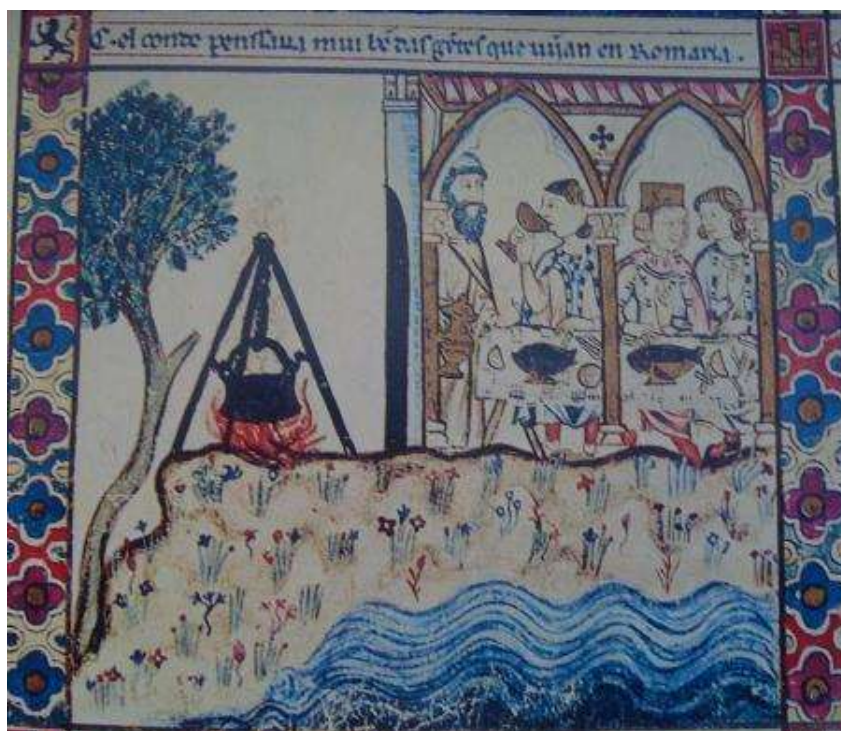 C·el conde penssaua mui bẽ das gẽtes que uijan en Romaria.